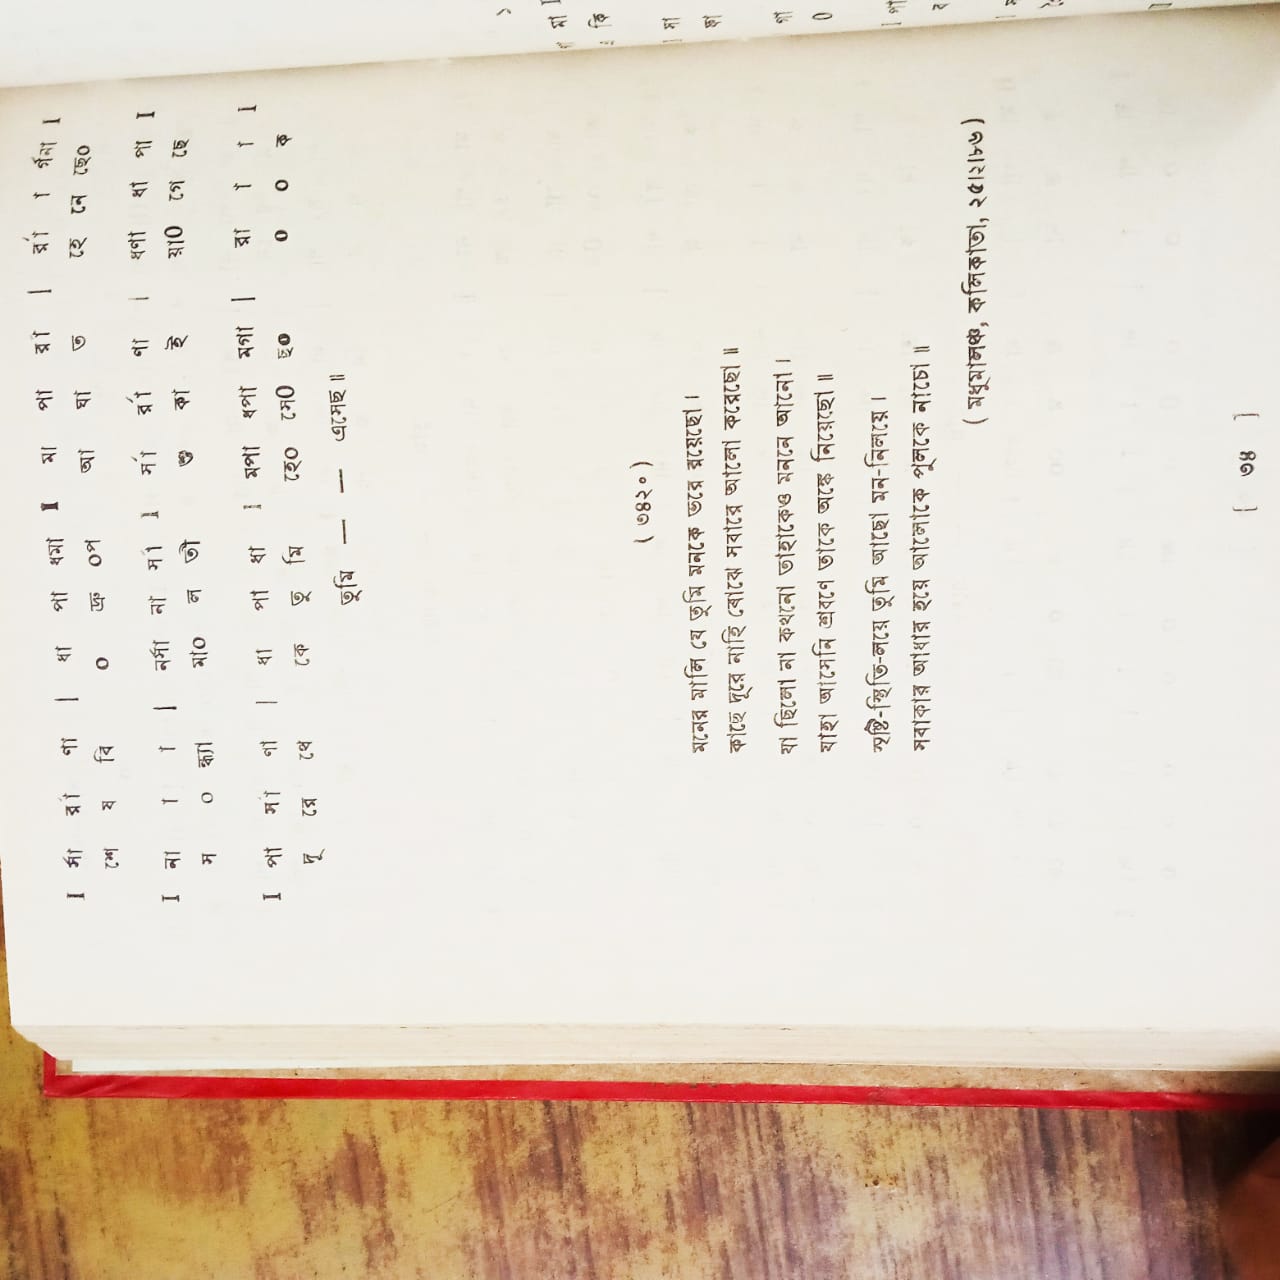 I র্সা র্রা ণা | ধা পা ধমা I মা পা র্রা | র্রা া র্গনা I
শে ষ বি ০ দ্রূ ০প আ ঘা ত হে নে ছে০
I না া া | নর্সা না র্সা I র্সা র্রা ণা | ধণা ধা পা I
স ০ ন্ধ্যা মা০ ল তী শু কা ই য়া০ গে ছে
I পা র্সা ণা | ধা পা ধা I মপা ধপা মগা | রা া া I
দূ রে থে কে তু মি হে০ সে০ ছ০ ০ ০ ক
তুমি — — এসেছ ॥
( ৩৪২০ )
মনের মালি যে তুমি মনকে ভরে রয়েছো ।
কাছে দূরে নাহি বোঝে সবারে আলো করেছো ॥
যা ছিলো না কখনো তাহাকেও মননে আনো ।
যাহা আসেনি শ্রবণে তাকে অঙ্কে নিয়েছো ॥
সৃষ্টি-স্থিতি-লয়ে তুমি আছো মন-নিলয়ে ।
সবাকার আধার হয়ে আলোকে পুলকে নাচো ॥
( মধুমালঞ্চ, কলিকাতা, ২৫।২।৮৬ )
[ ৩৪ ]